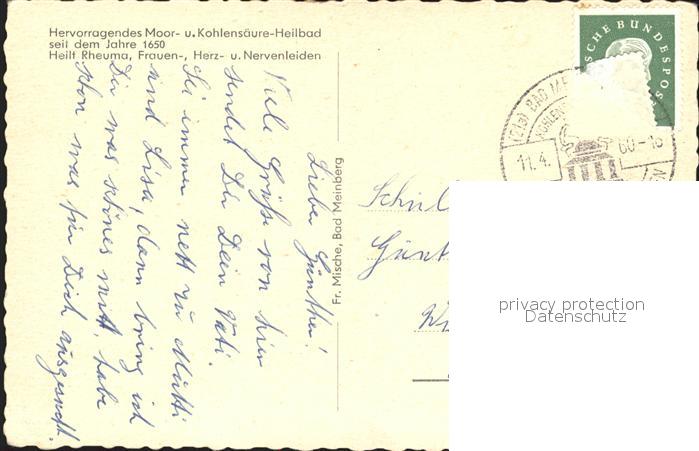 Hervorragendes Moor- u. Kohlensäure-Heilbad
seit dem Jahre 1650
Heilt Rheuma, Frauen-, Herz- u. Nervenleiden
Lieber Günther!
Viele Grüße von hier
sendet Dir Dein Vati.
Sei immer nett zu Mutti
und Lisa, dann bring ich
Dir was schönes mit, habe
schon was für Dich ausgesucht.
Fr. Mische, Bad Meinberg
SCHE BUNDESPOS
(21a) BAD ME
KOHLENS
11.4.
60-18
Schül
Günt
privacy protection
Datenschutz